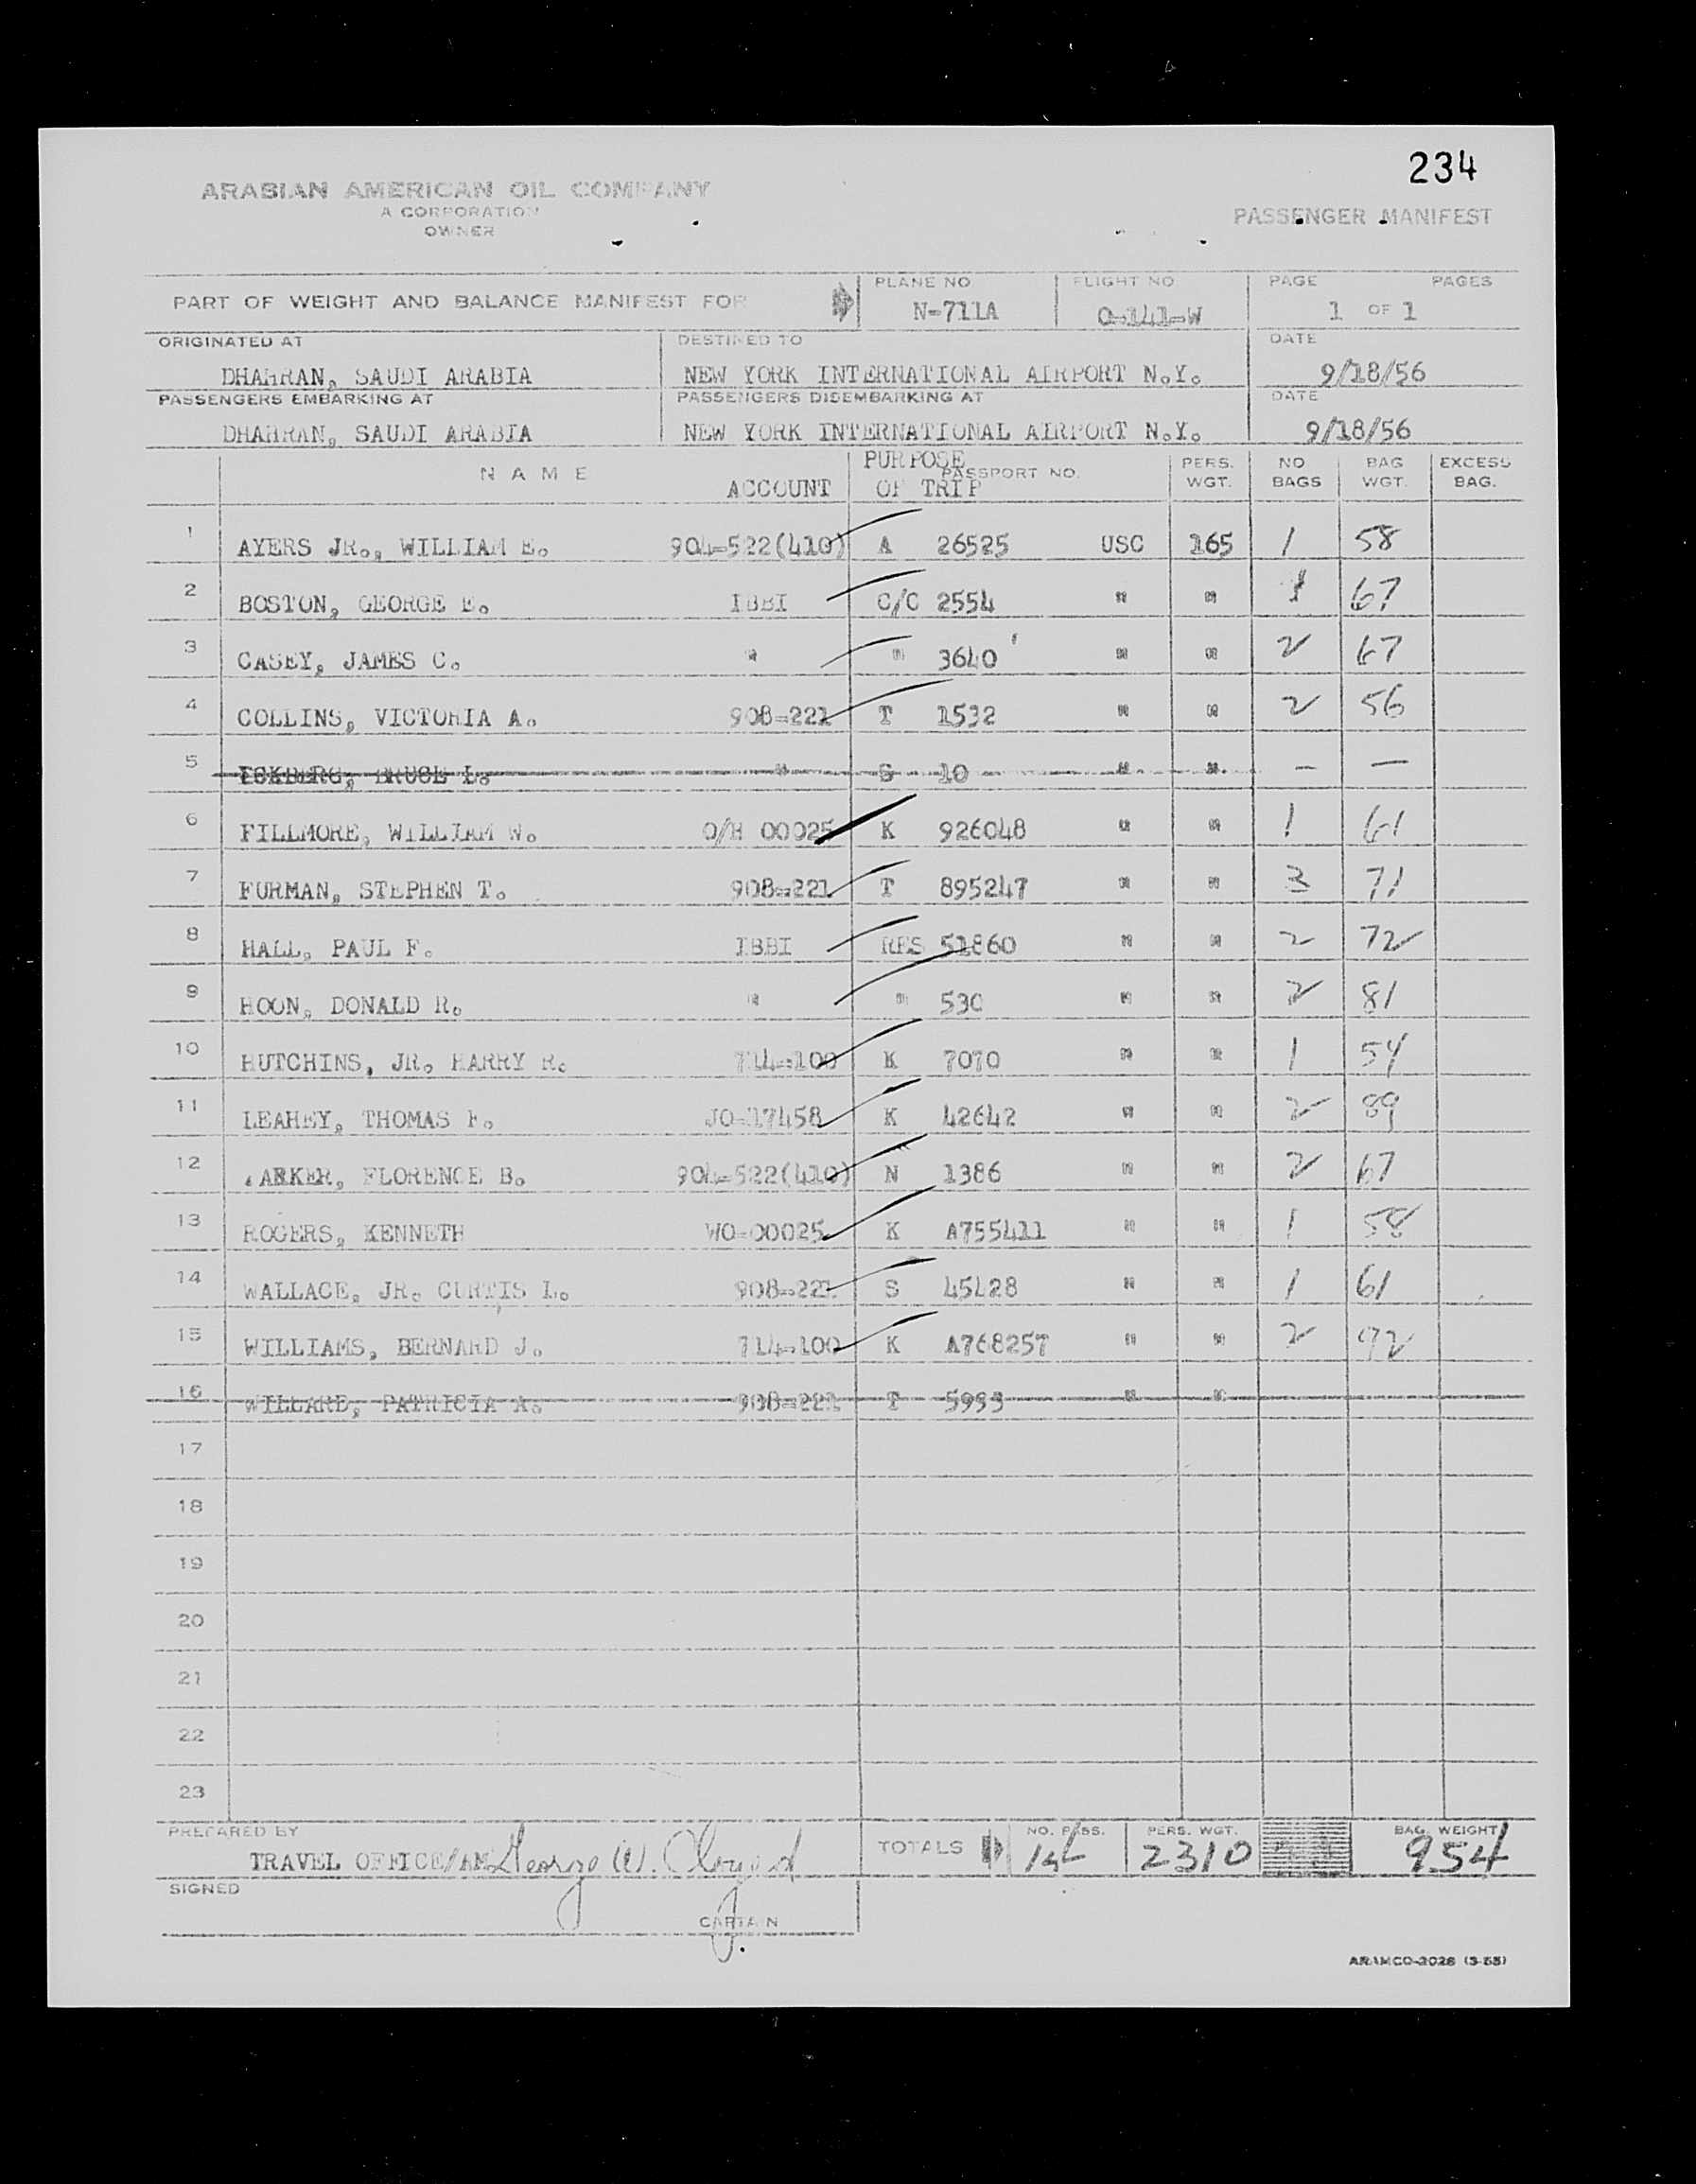 234
ARABIAN AMERICAN OIL COMPANY
A CORPORATION
OWNER
PASSENGER MANIFEST
PART OF WEIGHT AND BALANCE MANIFEST FOR
PLANE NO
N-711A
FLIGHT NO
O-141-W
PAGE PAGES
1 OF 1
ORIGINATED AT
DHAHRAN, SAUDI ARABIA
DESTINED TO
NEW YORK INTERNATIONAL AIRPORT N.Y.
DATE
9/18/56
PASSENGERS EMBARKING AT
DHAHRAN, SAUDI ARABIA
PASSENGERS DISEMBARKING AT
NEW YORK INTERNATIONAL AIRPORT N.Y.
DATE
9/18/56
NAME ACCOUNT PURPOSE OF TRIP PASSPORT NO. PERS. WGT. NO BAGS BAG WGT. EXCESS BAG.
1 AYERS JR., WILLIAM E. 904-522(410) A 26525 USC 165 1 58
2 BOSTON, GEORGE E. IBBI C/C 2554 " " 1 67
3 CASEY, JAMES C. " " 3640 " " 2 67
4 COLLINS, VICTORIA A. 908-221 T 1532 " " 2 56
5 BRUCE L. " S 10 " " - -
6 FILLMORE, WILLIAM W. O/H 00025 K 926048 " " 1 61
7 FURMAN, STEPHEN T. 908-221 T 895247 " " 3 71
8 HALL, PAUL F. IBBI RES 51860 " " 2 72
9 HOON, DONALD R. " " 530 " " 2 81
10 HUTCHINS, JR. HARRY R. 714-100 K 7070 " " 1 54
11 LEAHEY, THOMAS F. JO-17458 K 42642 " " 2 89
12 ARKER, FLORENCE B. 904-522(410) N 1386 " " 2 67
13 ROGERS, KENNETH WO-00025 K A755411 " " 1 58
14 WALLACE, JR. CURTIS L. 908-221 S 45428 " " 1 61
15 WILLIAMS, BERNARD J. 714-100 K A768257 " " 2 92
16 WILLARD, PATRICIA A. 908-221 T 5993 " "
17
18
19
20
21
22
23
PREPARED BY
TRAVEL OFFICE/AM George W.
TOTALS
NO. PASS.
14
PERS. WGT.
2310
BAG. WEIGHT
954
SIGNED
CAPTAIN
ARAMCO-2026 (3-55)